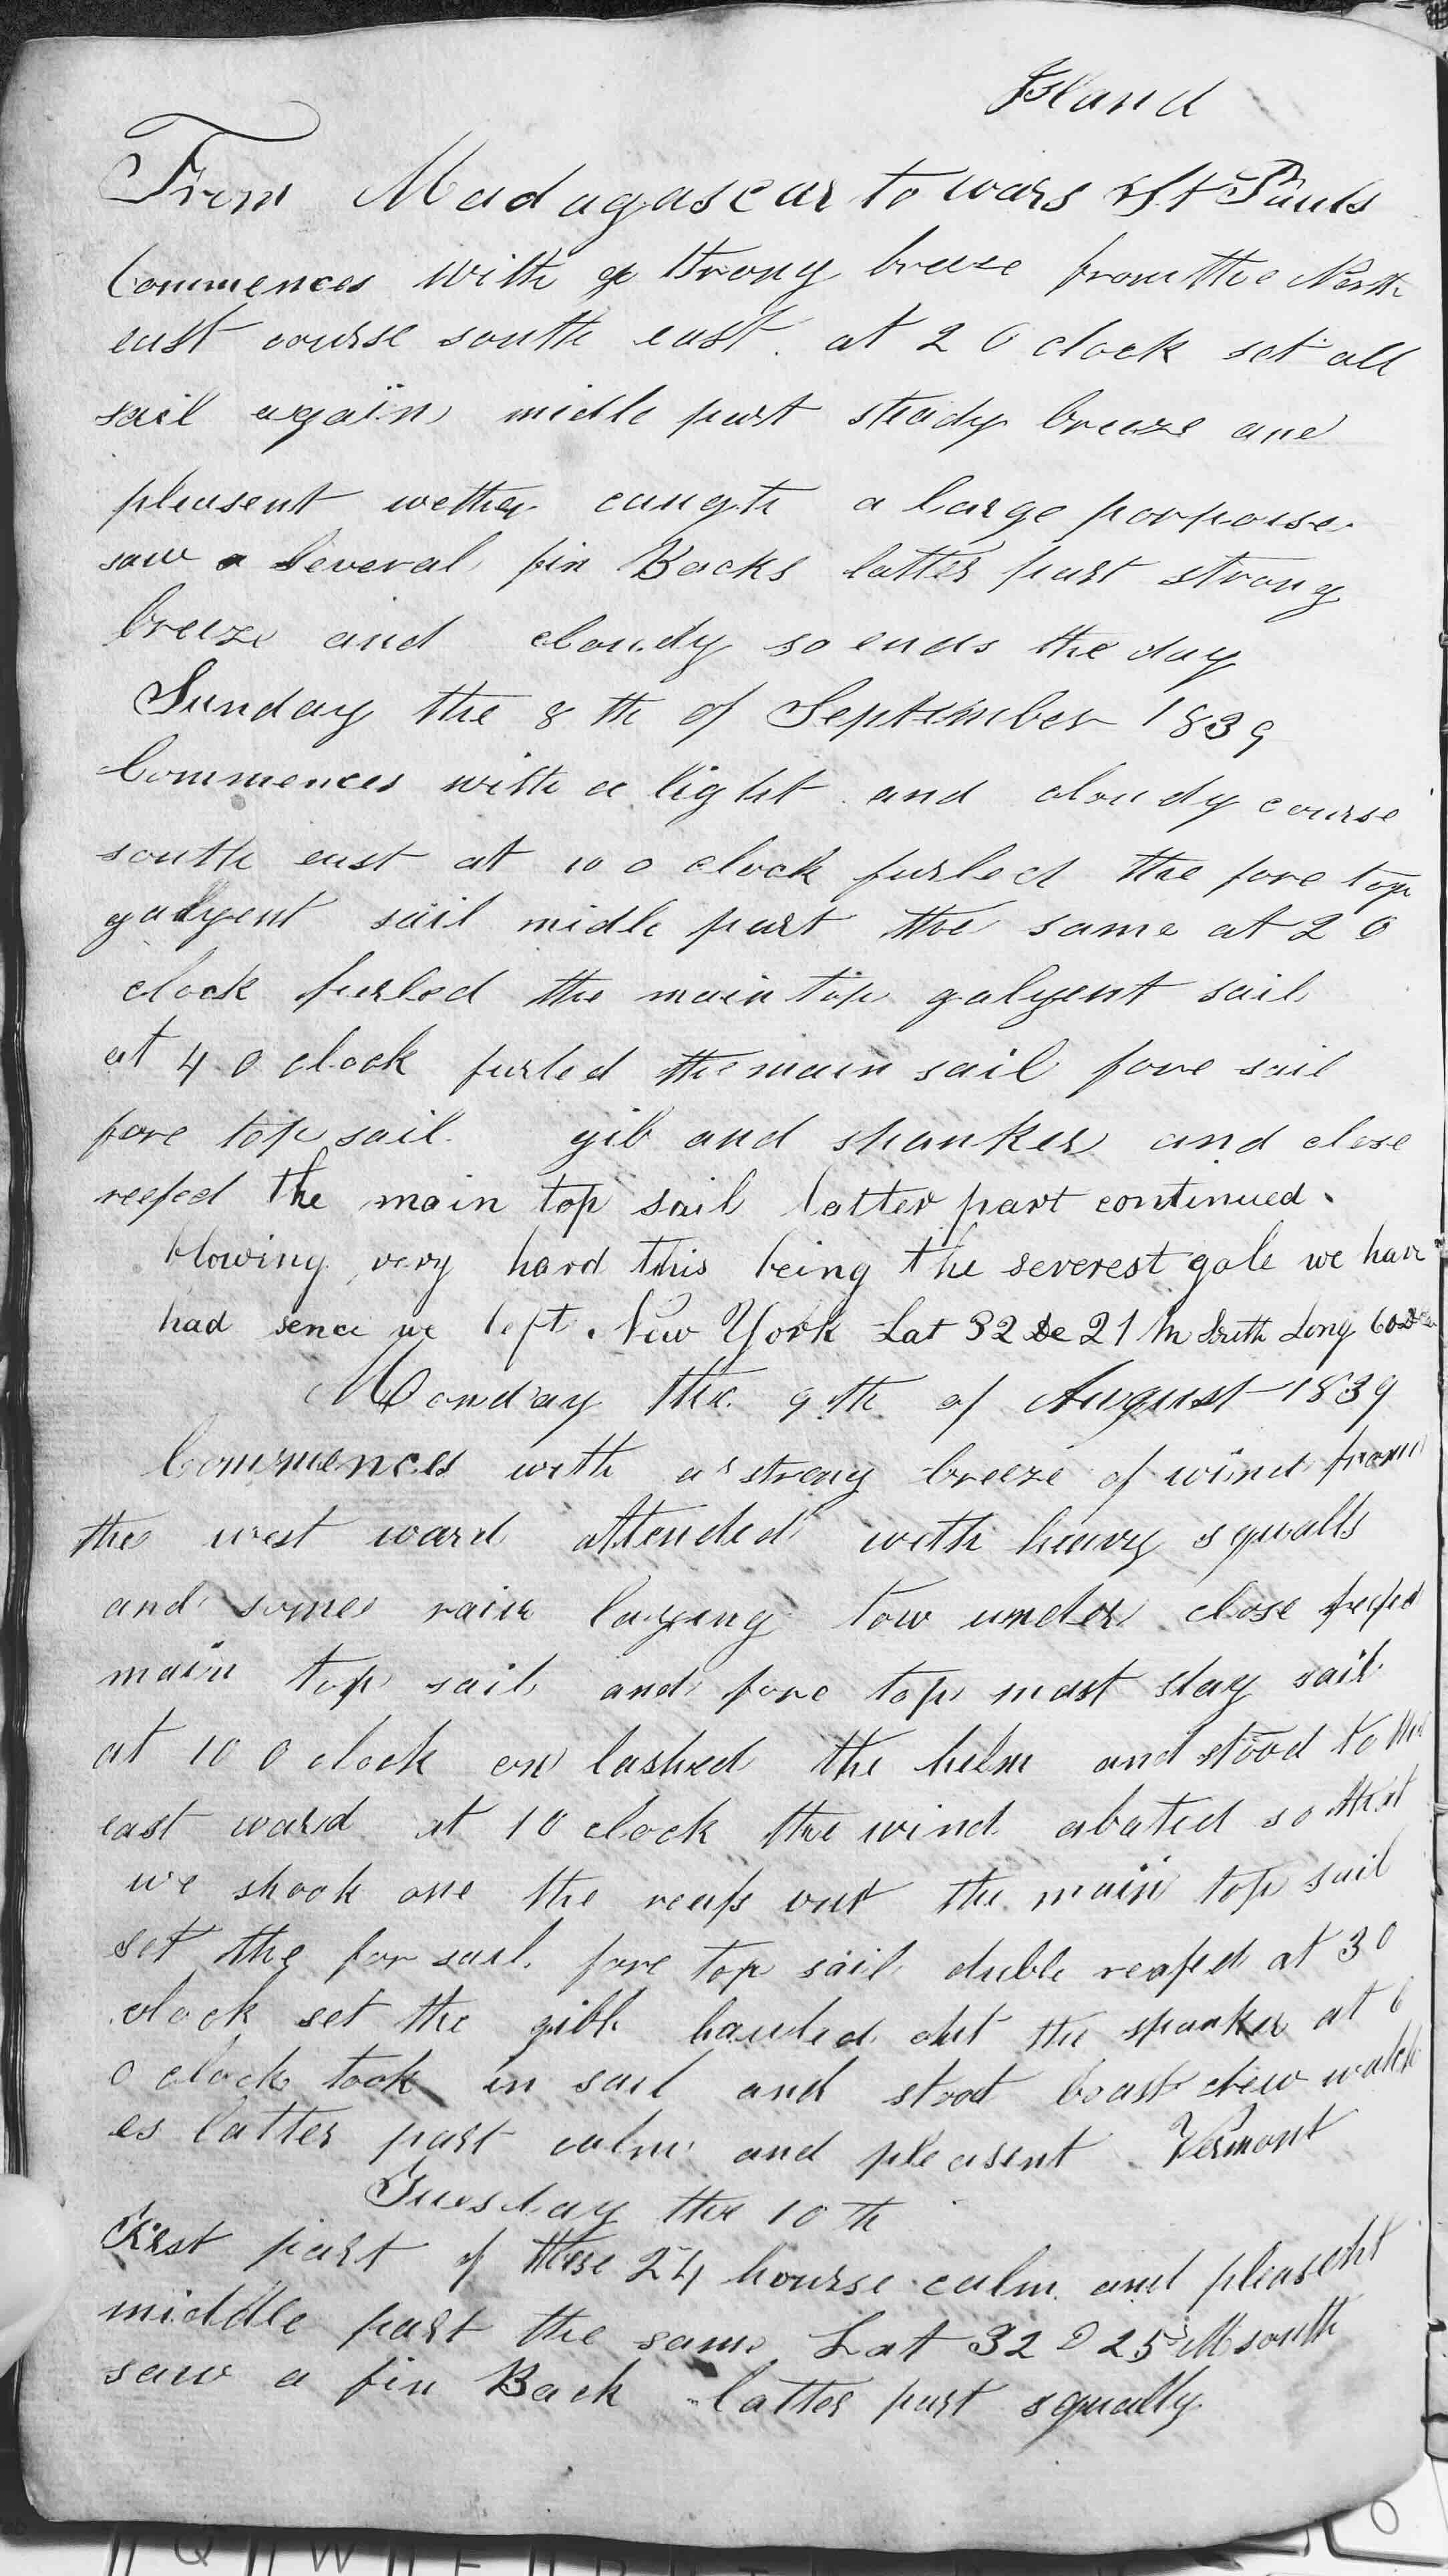 Island
From Madagascar to wars St Pauls
Commences with a strong breze from the North
east course south east. at 2 O clock set all
sail again midle part steady breeze and
pleasent wether caugth a large porpoise.
saw a several fin Backs latter part strong
breeze and cloudy so ends the day
Sunday the 8 th of September 1839
Commences with a light and cloudy course
south east at 10 o clock furled the fore top
galyent sail midle part the same at 2 O
clock furled the main top galyent sail
at 4 o clock furled the main sail fore sail
fore top sail. gib and spanker and close
reefed the main top sail latter part continued
blowing very hard this being the severest gale we have
had sence we left New York Lat 32 De 21 M South Long 60
Monday the 9 th of August 1839
Commences with a strong breeze of wind from
the west ward attended with heavy squalls
and some rain laying tow under close reefed
main top sail and fore top mast stay sail
at 10 O clock on lashed the helm and stood to the
east ward at 10 clock the wind abated so that
we shook one the reafs out the main top sail
set the for sail. fore top sail duble reafed at 3 O
clock set the gibb hauled out the spanker at 6
o clock took in sail and stood boast crew watch
es latter part calm and pleasent Vermont
Tuesday the 10 th
First part of these 24 hourse calm and pleasent
middle part the same Lat 32 D 25 M south
saw a fin Back latter part squally